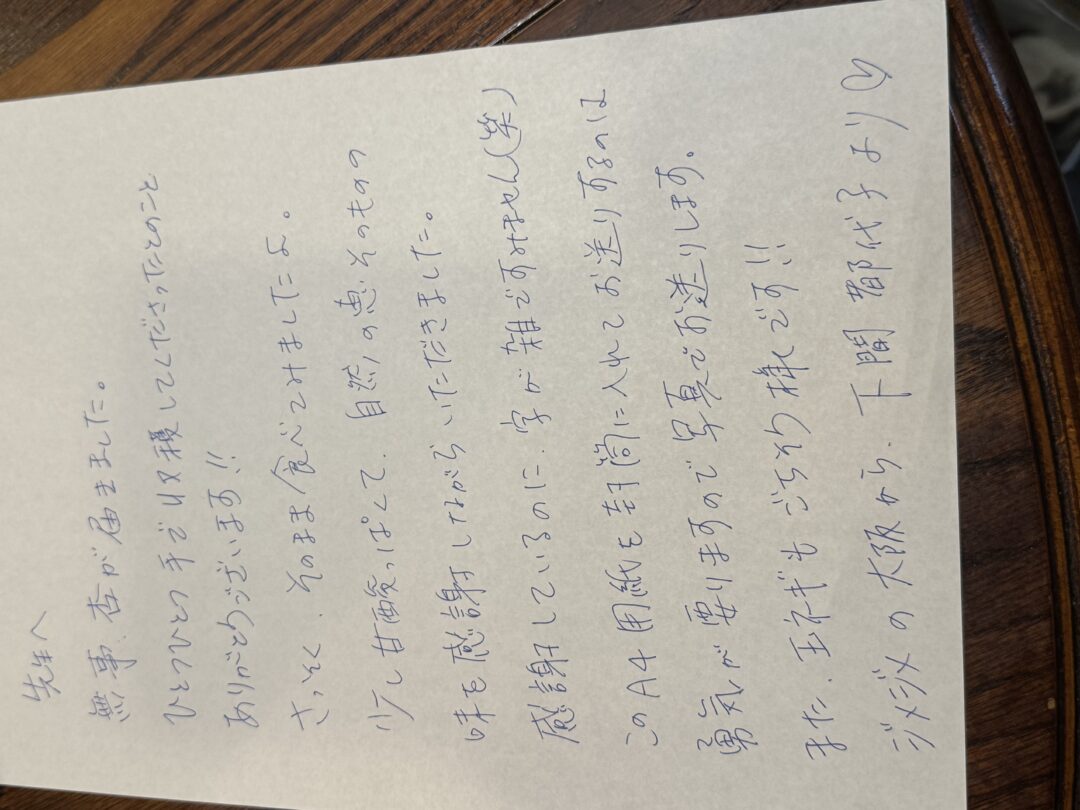 先生へ
無事、杏が届きました。
ひとつひとつ手で収穫してくださったとのこと
ありがとうございます!!
さっそく、そのまま食べてみましたよ。
少し甘酸っぱくて、自然の恵そのものの
味を感謝しながらいただきました。
感謝しているのに、字が雑ですみません(笑)
このA4用紙を封筒に入れてお送りするのは
勇気が要りますので写真でお送りします。
また、玉ネギもごちそう様です!!
ジメジメの大阪から、下間都代子より♡